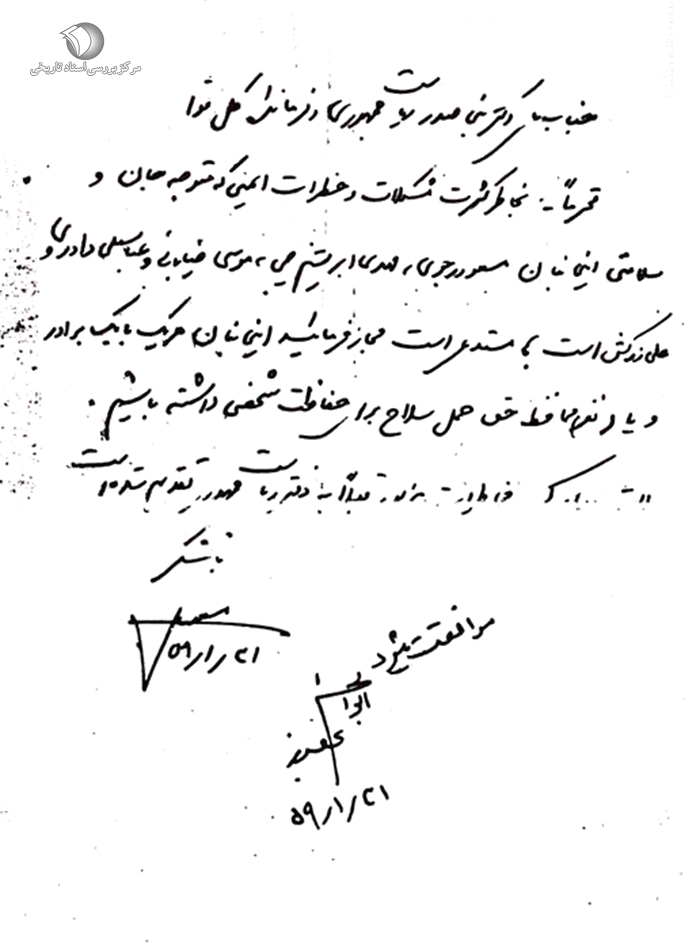 مرکز بررسی اسناد تاریخی
جناب آقای دکتر بنی صدر ریاست جمهوری و فرمانده کل قوا
محترماً - بخاطر کثرت مشکلات و خطرات ایمنی که متوجه جان و
سلامتی اینجانبان مسعود رجوی، مهدی ابریشم چی، موسی خیابانی و عباسعلی داوری و
علی زرکش است مستدعی است مجاز فرمائید اینجانبان هریک با یک برادر
و یا نفر محافظ حق حمل سلاح برای حفاظت شخصی داشته باشیم.
قبلاً به دفتر ریاست جمهوری تقدیم شده است
با تشکر
مسعود
۵۹/۱/۲۱
موافقت میشود
ابوالحسن
۵۹/۱/۲۱